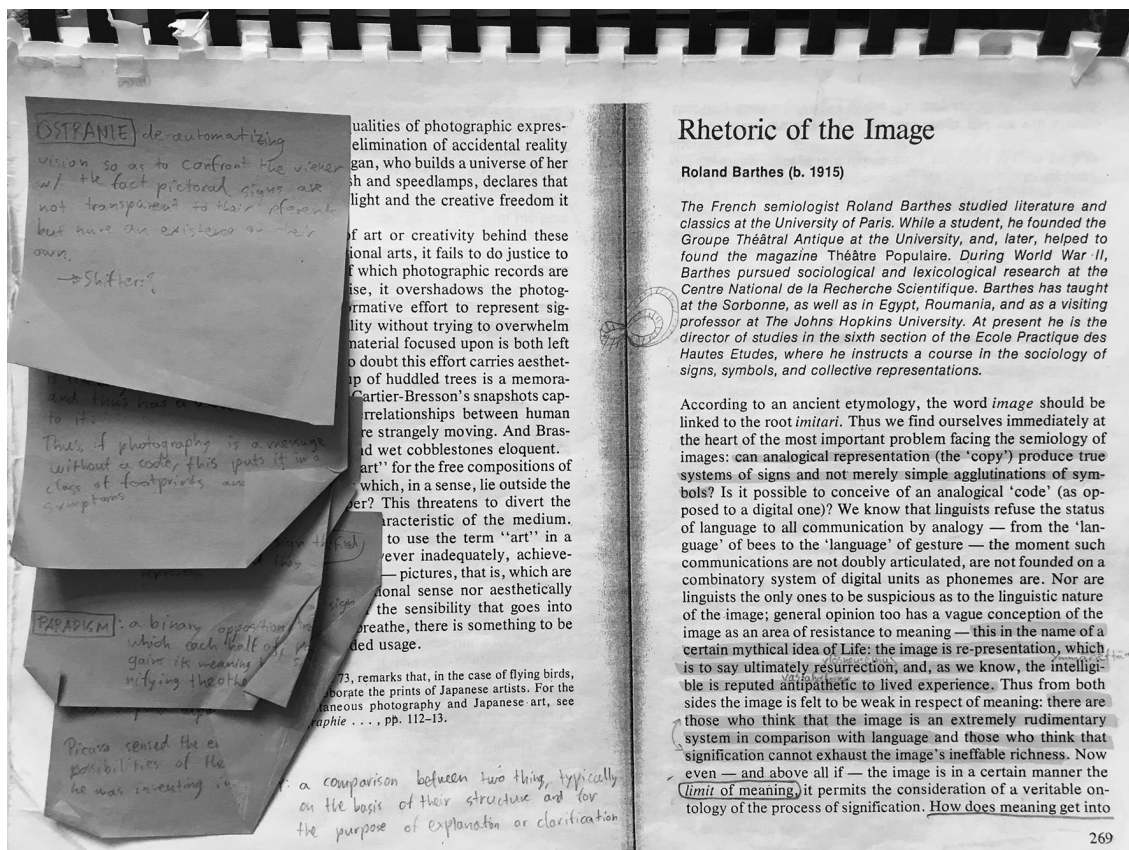 OSTRANIE de-automatizing
vision so as to confront the viewer
w/ the fact pictoral signs are
not transparent to their
but have an existence on their
own.
→ Shifters?
and thus has
to it.
Thus, if photography is a message
without a code, this puts it in a
class of footprints and
symptoms
PARADIGM: a binary opposition
which each half of
gains its meaning
nifying the othe
Picasso sensed the
possibilities of the
he was inventing in
: a comparison between two thing, typically
on the basis of their structure and for
the purpose of explanation or clarification
ualities of photographic expres-
elimination of accidental reality
gan, who builds a universe of her
sh and speedlamps, declares that
light and the creative freedom it
of art or creativity behind these
ional arts, it fails to do justice to
f which photographic records are
ise, it overshadows the photog-
ormative effort to represent sig-
lity without trying to overwhelm
material focused upon is both left
o doubt this effort carries aesthet-
up of huddled trees is a memora-
Cartier-Bresson's snapshots cap-
rrelationships between human
re strangely moving. And Bras-
nd wet cobblestones eloquent.
art" for the free compositions of
which, in a sense, lie outside the
per? This threatens to divert the
aracteristic of the medium.
to use the term "art" in a
ever inadequately, achieve-
— pictures, that is, which are
ional sense nor aesthetically
the sensibility that goes into
breathe, there is something to be
ded usage.
73, remarks that, in the case of flying birds,
borate the prints of Japanese artists. For the
taneous photography and Japanese art, see
raphie . . . , pp. 112–13.
Rhetoric of the Image
Roland Barthes (b. 1915)
The French semiologist Roland Barthes studied literature and
classics at the University of Paris. While a student, he founded the
Groupe Théâtral Antique at the University, and, later, helped to
found the magazine Théâtre Populaire. During World War II,
Barthes pursued sociological and lexicological research at the
Centre National de la Recherche Scientifique. Barthes has taught
at the Sorbonne, as well as in Egypt, Roumania, and as a visiting
professor at The Johns Hopkins University. At present he is the
director of studies in the sixth section of the Ecole Practique des
Hautes Etudes, where he instructs a course in the sociology of
signs, symbols, and collective representations.
According to an ancient etymology, the word image should be
linked to the root imitari. Thus we find ourselves immediately at
the heart of the most important problem facing the semiology of
images: can analogical representation (the 'copy') produce true
systems of signs and not merely simple agglutinations of sym-
bols? Is it possible to conceive of an analogical 'code' (as op-
posed to a digital one)? We know that linguists refuse the status
of language to all communication by analogy — from the 'lan-
guage' of bees to the 'language' of gesture — the moment such
communications are not doubly articulated, are not founded on a
combinatory system of digital units as phonemes are. Nor are
linguists the only ones to be suspicious as to the linguistic nature
of the image; general opinion too has a vague conception of the
image as an area of resistance to meaning — this in the name of a
certain mythical idea of Life: the image is re-presentation, which
is to say ultimately resurrection, and, as we know, the intelligi-
ble is reputed antipathetic to lived experience. Thus from both
sides the image is felt to be weak in respect of meaning: there are
those who think that the image is an extremely rudimentary
system in comparison with language and those who think that
signification cannot exhaust the image's ineffable richness. Now
even — and above all if — the image is in a certain manner the
limit of meaning, it permits the consideration of a veritable on-
tology of the process of signification. How does meaning get into
269